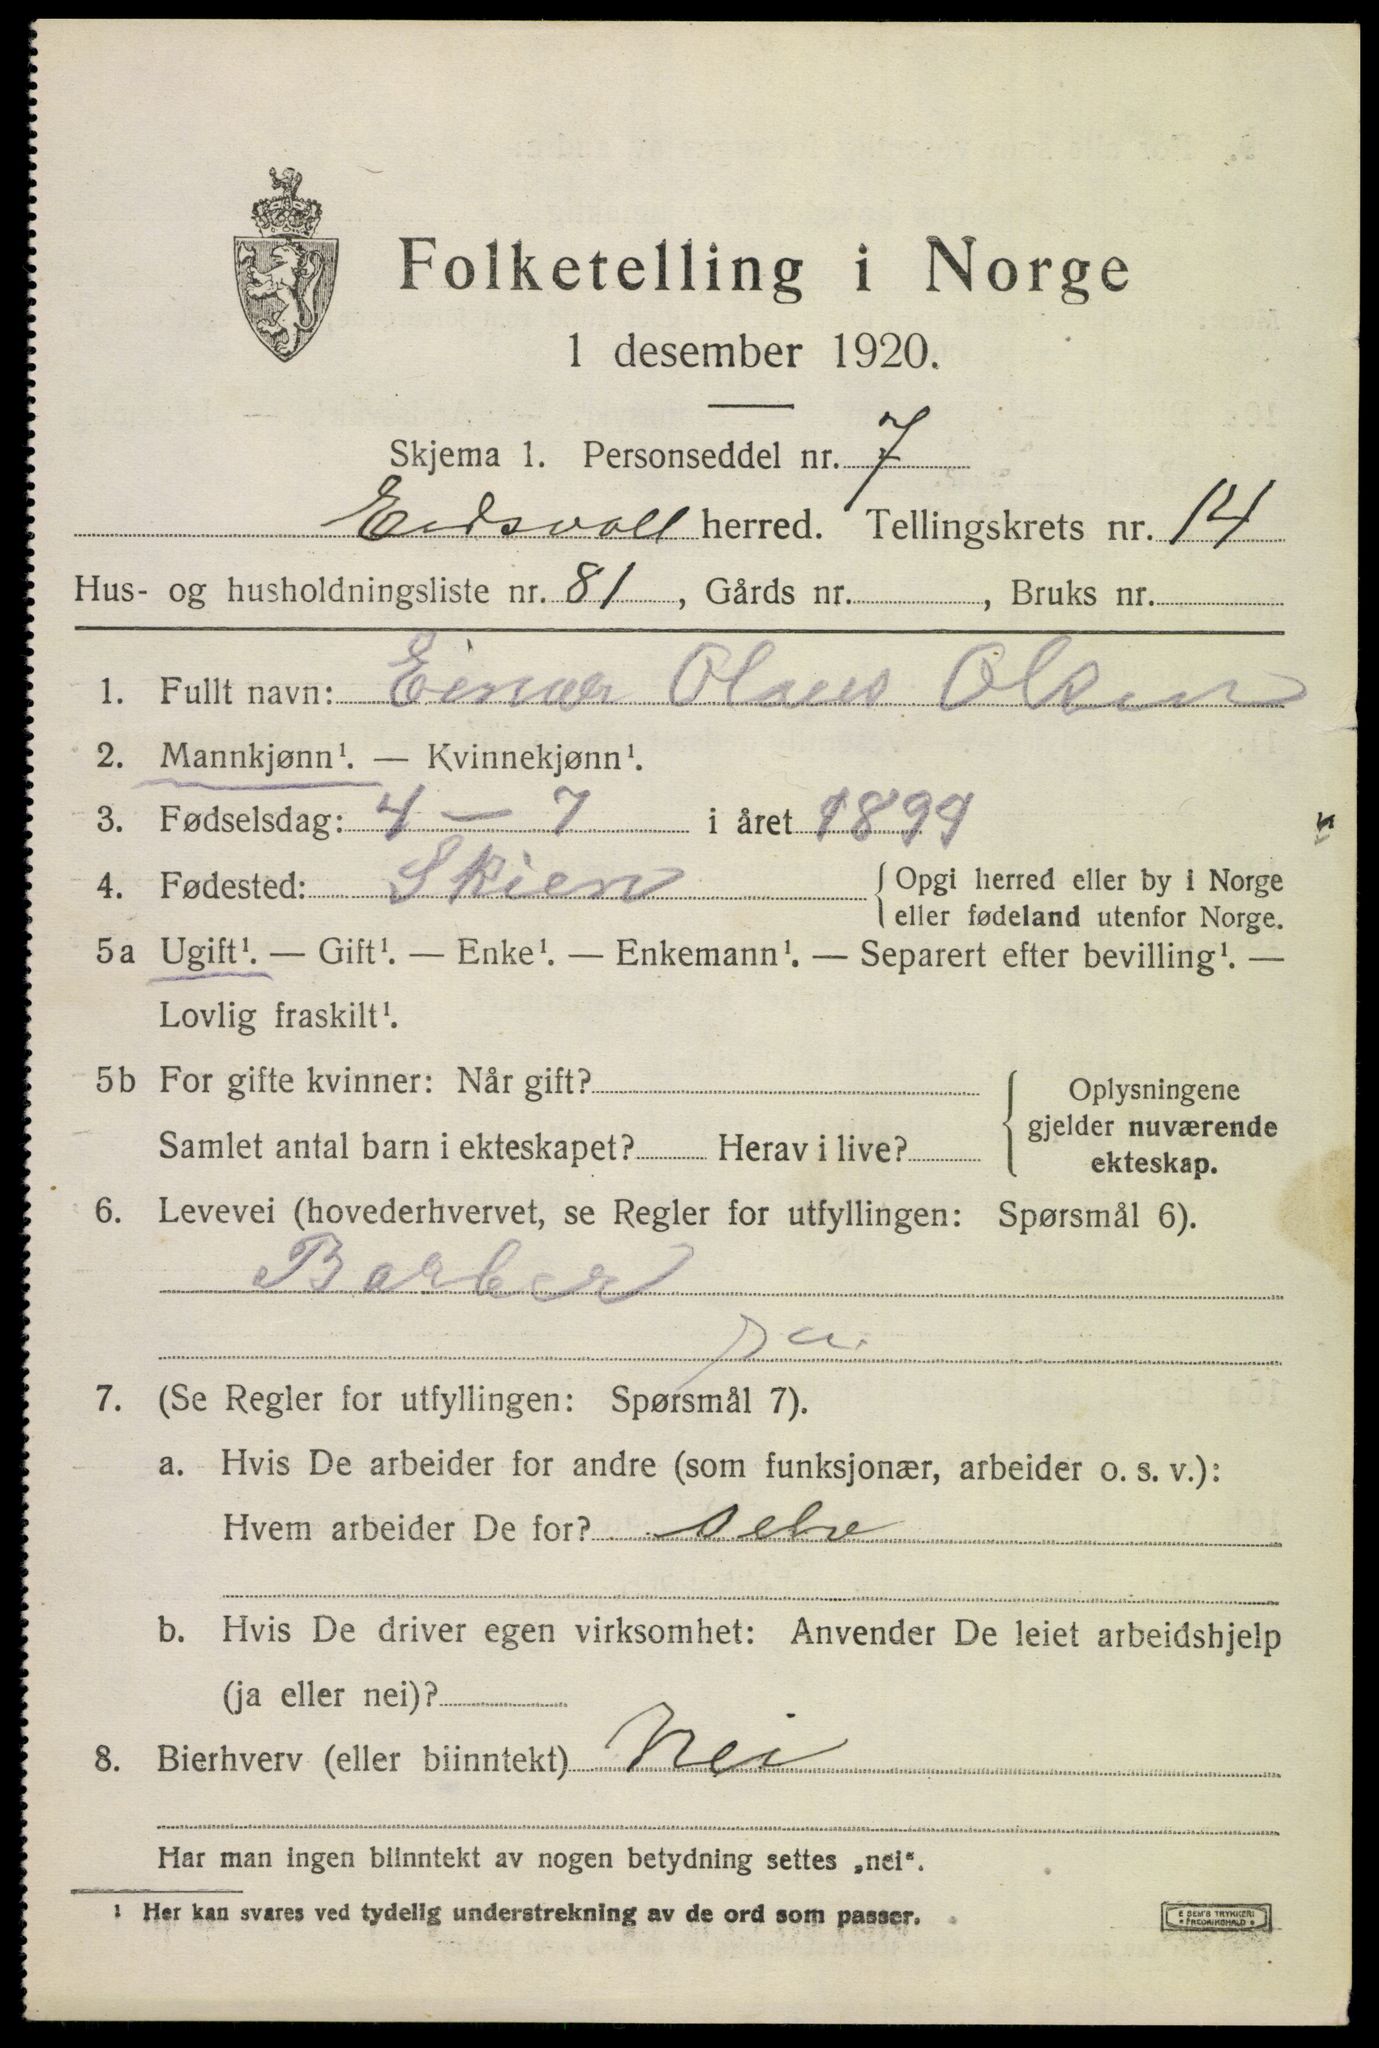 Folketelling i Norge
1 desember 1920.
Skjema 1. Personseddel nr. 7
Eidsvoll herred. Tellingskrets nr. 14
Hus- og husholdningsliste nr. 81, Gårds nr. , Bruks nr.
1. Fullt navn: Einar Olaus Olsen
2. Mannkjønn¹. — Kvinnekjønn¹.
3. Fødselsdag: 4 – 7 i året 1899
4. Fødested: Skien {Opgi herred eller by i Norge
eller fødeland utenfor Norge.
5a Ugift¹. — Gift¹. — Enke¹. — Enkemann¹. — Separert efter bevilling¹. —
Lovlig fraskilt¹.
5b For gifte kvinner: Når gift? { Oplysningene
gjelder nuværende
Samlet antal barn i ekteskapet? Herav i live?
ekteskap.
6. Levevei (hovederhvervet, se Regler for utfyllingen: Spørsmål 6).
Barber
7. (Se Regler for utfyllingen: Spørsmål 7).
a. Hvis De arbeider for andre (som funksjonær, arbeider o. s. v.):
Hvem arbeider De for?
b. Hvis De driver egen virksomhet: Anvender De leiet arbeidshjelp
(ja eller nei)?
8. Bierhverv (eller biinntekt) Nei
Har man ingen biinntekt av nogen betydning settes „nei“.
¹ Her kan svares ved tydelig understrekning av de ord som passer.
E SEM'S TRYKKERI
FREDRIKSHALD